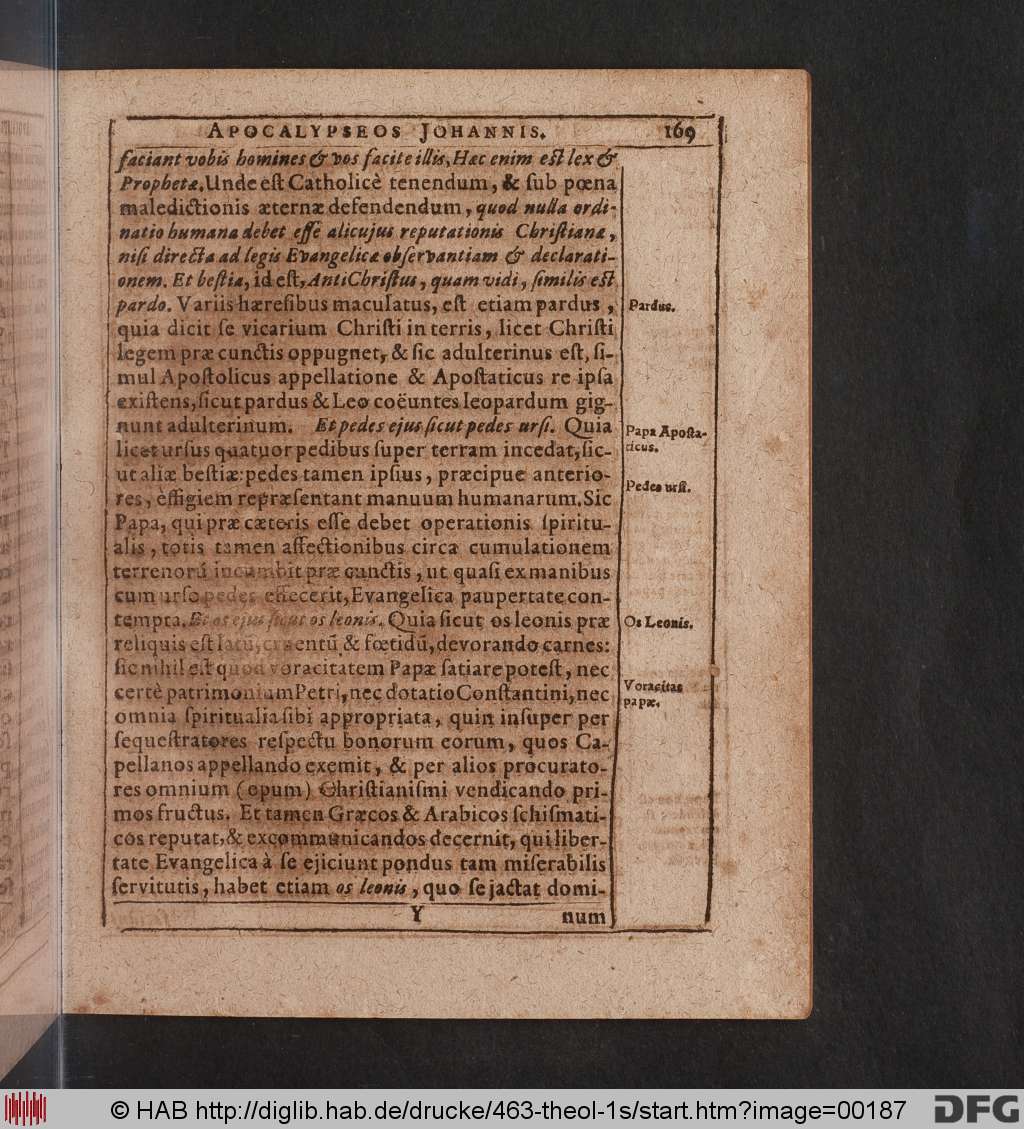 APOCALYPSEOS JOHANNIS. 169
faciant vobis homines & vos facite illis, Hæc enim est lex &
Prophetæ. Unde eſt Catholicè tenendum, & ſub pœna
maledictionis æternæ defendendum, quod nulla ordi-
natio humana debet eſſe alicujus reputationis Chriſtianæ,
niſi directa ad legis Evangelicæ obſervantiam & declarati-
onem. Et beſtia, id eſt, AntiChriſtus, quam vidi, ſimilis eſt
pardo. Variis hæreſibus maculatus, eſt etiam pardus,
quia dicit ſe vicarium Chriſti in terris, licet Chriſti
legem præ cunctis oppugnet, & ſic adulterinus eſt, ſi-
mul Apoſtolicus appellatione & Apoſtaticus re ipſa
exiſtens, ſicut pardus & Leo coëuntes leopardum gig-
nunt adulterinum. Et pedes ejus ſicut pedes urſi. Quia
licet urſus quatuor pedibus ſuper terram incedat, ſic-
ut aliæ beſtiæ: pedes tamen ipſius, præcipue anterio-
res, effigiem repræſentant manuum humanarum. Sic
Papa, qui præ cæteris eſſe debet operationis ſpiritu-
alis, totis tamen affectionibus circa cumulationem
terrenorū incumbit præ cunctis, ut quaſi ex manibus
cum urſo pedes effecerit, Evangelica paupertate con-
tempta. Et os ejus ſicut os leonis. Quia ſicut os leonis præ
reliquis eſt latū, cruentū & fœtidū, devorando carnes:
ſic nihil eſt quod voracitatem Papæ ſatiare poteſt, nec
certè patrimonium Petri, nec dotatio Conſtantini, nec
omnia ſpiritualia ſibi appropriata, quin inſuper per
ſequeſtratores reſpectu bonorum eorum, quos Ca-
pellanos appellando exemit, & per alios procurato-
res omnium (opum) Chriſtianiſmi vendicando pri-
mos fructus. Et tamen Græcos & Arabicos ſchiſmati-
cos reputat, & excommunicandos decernit, qui liber-
tate Evangelica à ſe ejiciunt pondus tam miſerabilis
ſervitutis, habet etiam os leonis, quo ſe jactat domi-
Y num
Pardus.
Papa Apoſta-
ticus.
Pedes urſi.
Os Leonis.
Voracitas
papæ.
© HAB http://diglib.hab.de/drucke/463-theol-1s/start.htm?image=00187
DFG